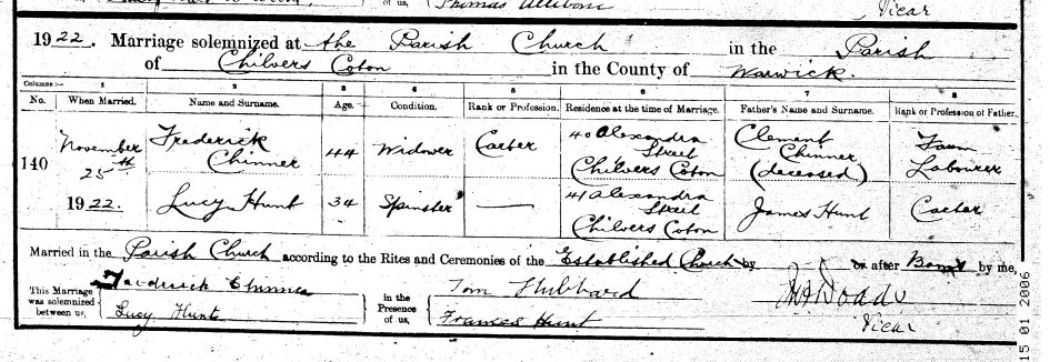 of us, Thomas
Vicar
1922. Marriage solemnized at the Parish Church in the Parish
of Chilvers Coton in the County of Warwick.
Columns:— 1 2 3 4 5 6 7 8
No. When Married. Name and Surname. Age. Condition. Rank or Profession. Residence at the time of Marriage. Father's Name and Surname. Rank or Profession of Father.
140 November 25th 1922. Frederick Chinner 44 Widower Carter 40 Alexandra Street Chilvers Coton Clement Chinner (deceased) Farm Labourer
Lucy Hunt 34 Spinster — 41 Alexandra Street Chilvers Coton James Hunt Carter
Married in the Parish Church according to the Rites and Ceremonies of the Established Church by or after Banns by me,
This Marriage was solemnized between us, Frederick Chinner Lucy Hunt
in the Presence of us, Tom Hubbard Frances Hunt
Vicar
15 01 2006